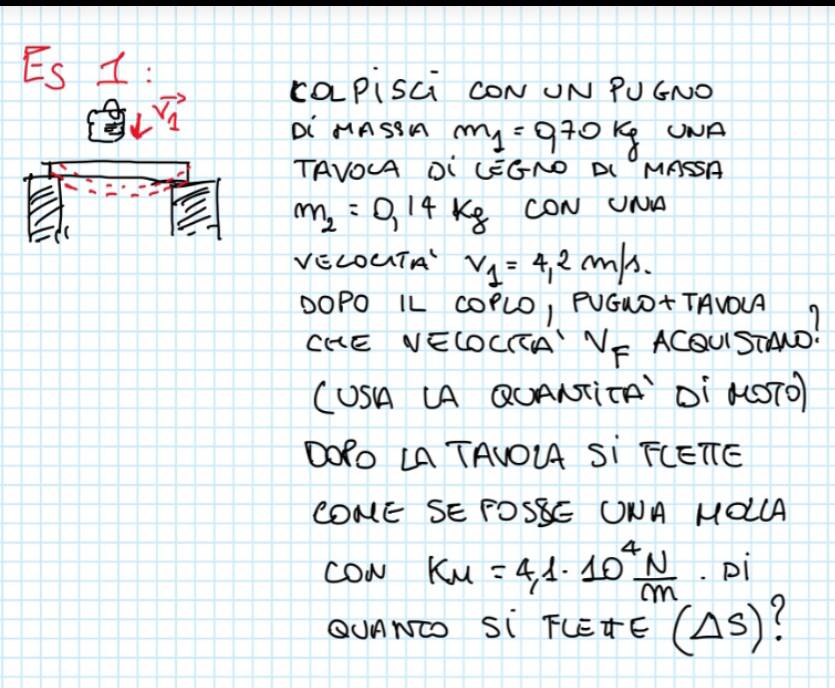 ES 1:
V₁
COLPISCI CON UN PUGNO
DI MASSA m₁ = 0,70 Kg UNA
TAVOLA DI LEGNO DI MASSA
m₂ = 0,14 Kg CON UNA
VELOCITA' V₁ = 4,2 m/s.
DOPO IL COPLO, PUGNO + TAVOLA
CHE VELOCITA' V_F ACQUISTANO?
(USA LA QUANTITA' DI MOTO)
DOPO LA TAVOLA SI FLETTE
COME SE FOSSE UNA MOLLA
CON KM = 4,1 · 10⁴ N/m . DI
QUANTO SI FLETTE (ΔS)?